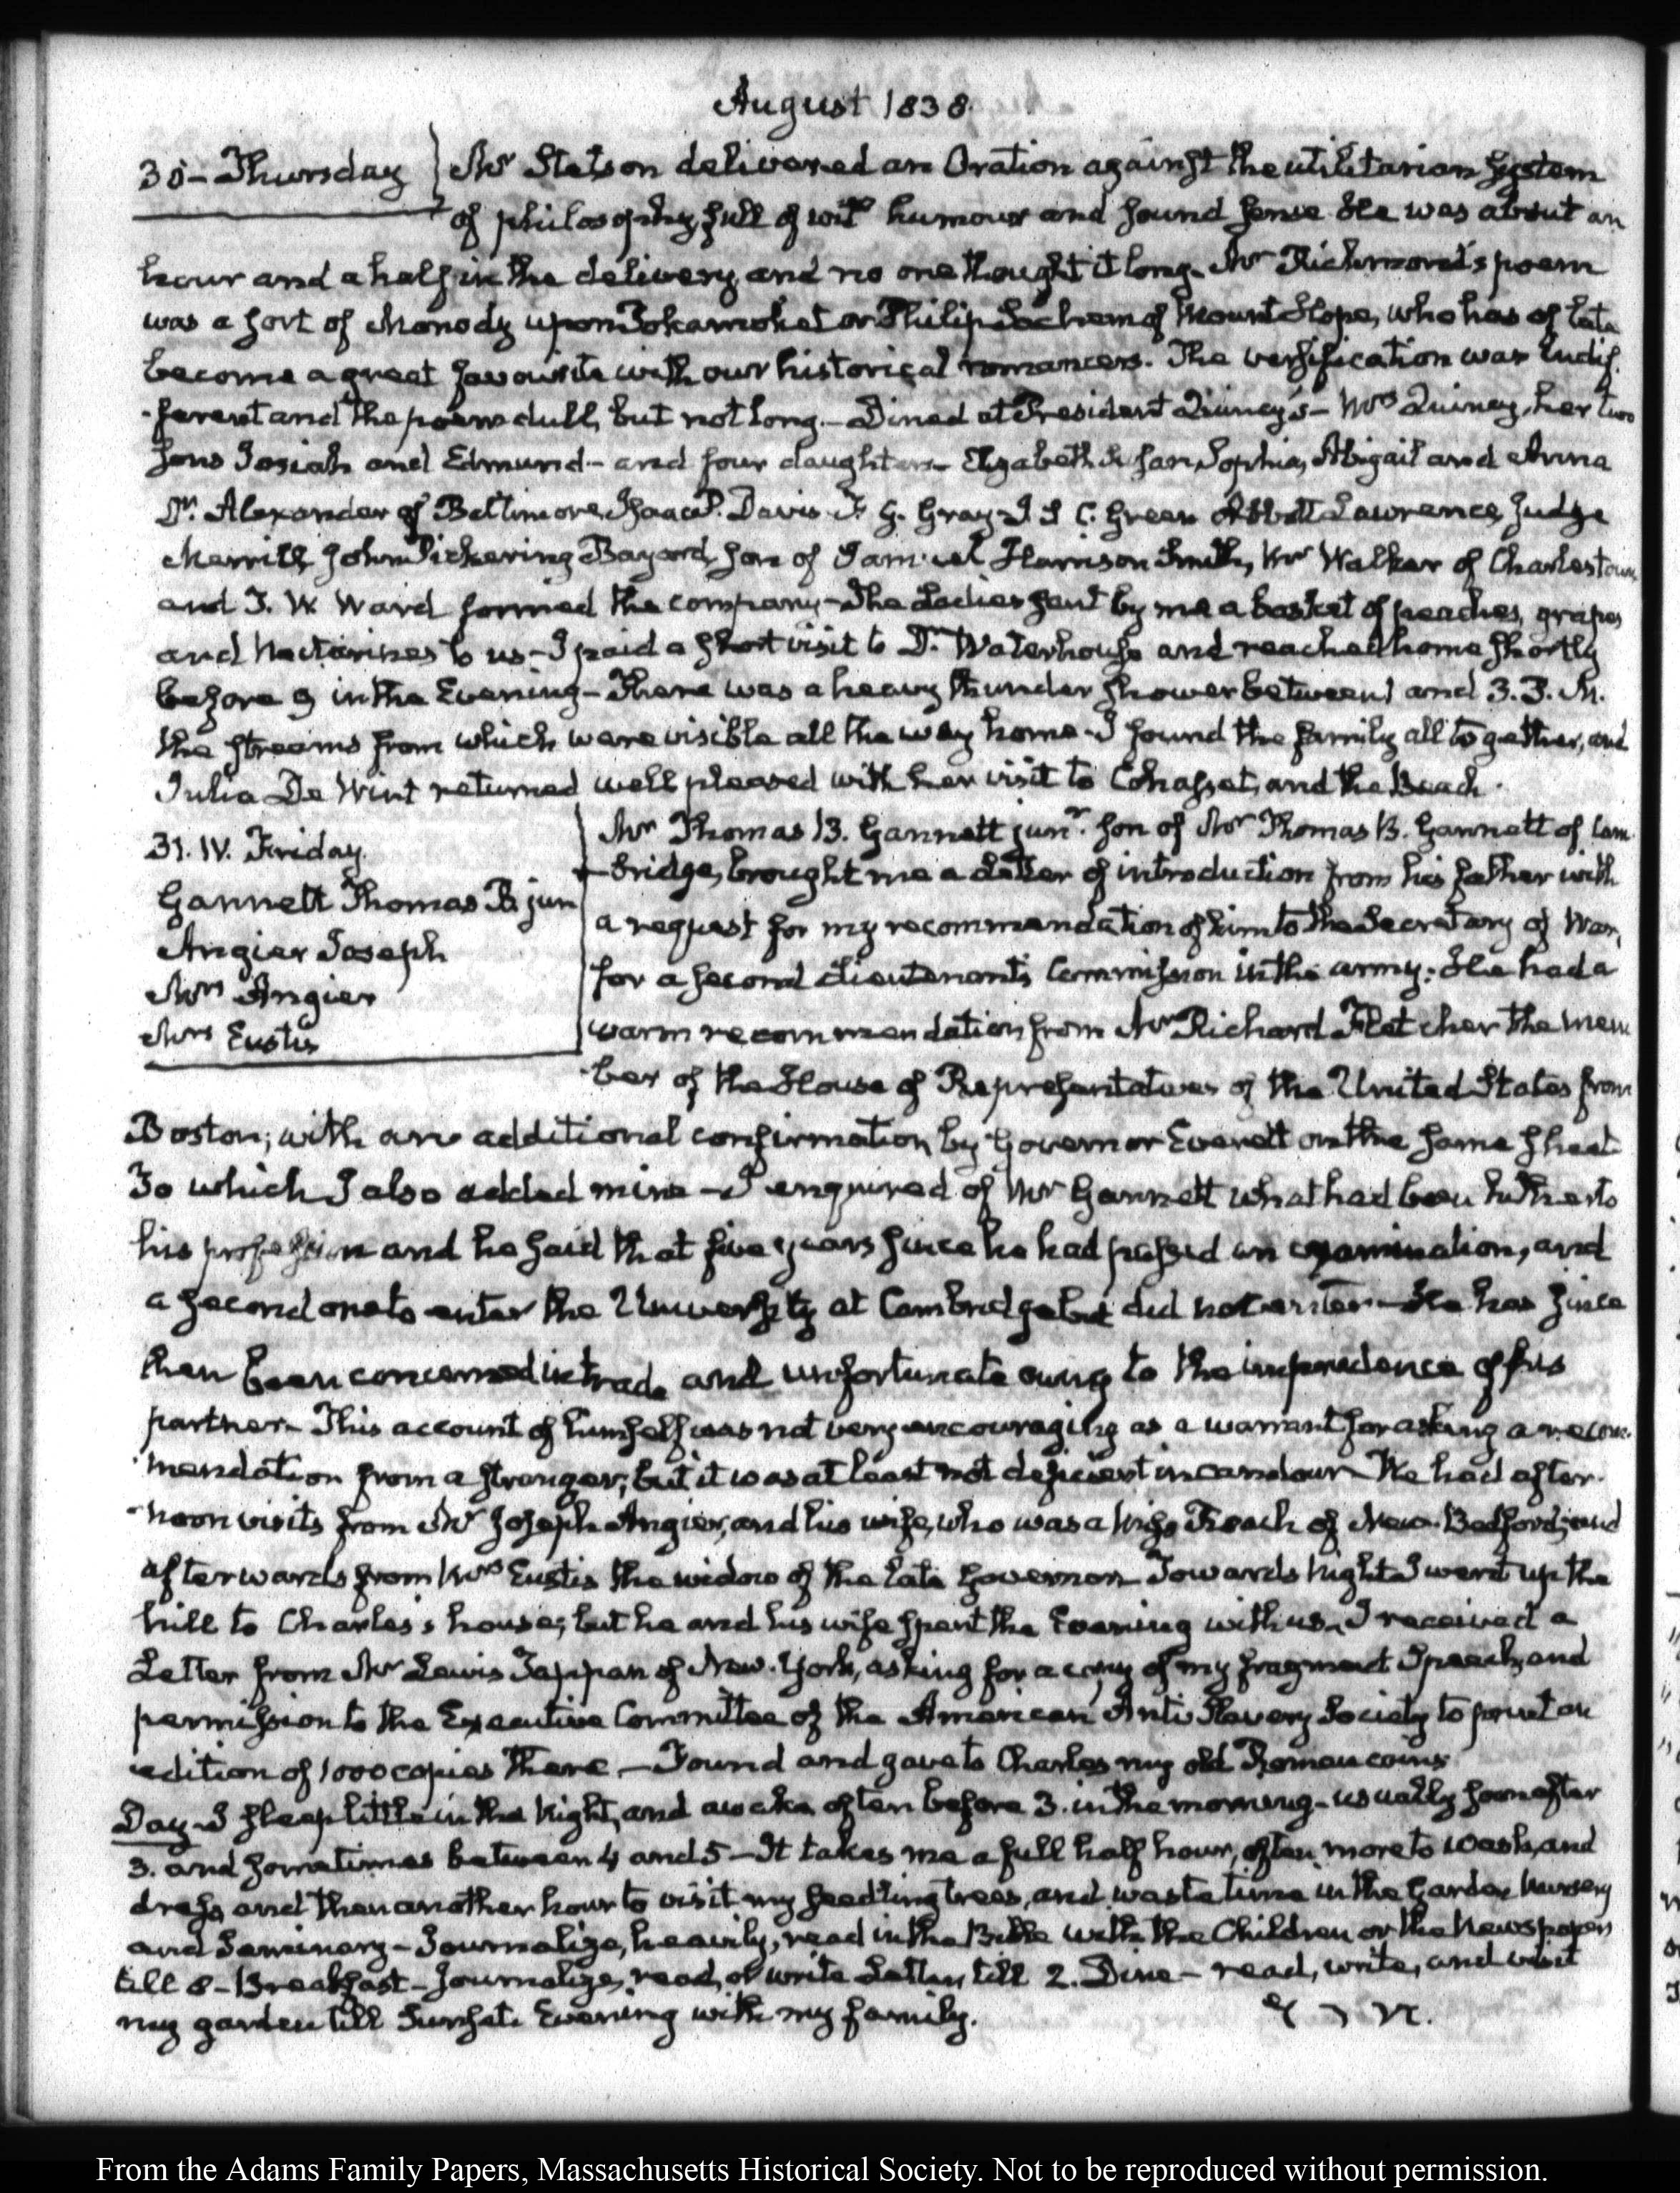 August 1838.
30 – Thursday
Mr Stetson delivered an Oration against the utilitarian System
of philosophy, full of wit humour and sound sense. He was about an
hour and a half in the delivery, and no one thought it long. Mr Richmond's poem
was a sort of Monody upon Pokamoket or Philip Sachem of Mount Hope, who has of late
become a great favourite with our historical romancers. The versification was indif-
-ferent and the poem dull, but not long. – Dined at President Quincy's – Mrs Quincy, her two
sons Josiah and Edmund – and four daughters – Elizabeth Susan, Sophia, Abigail and Anna
Dr. Alexander of Baltimore, Isaac P. Davis. F. G. Gray J. S C. Green Abbott Lawrence, Judge
Merrill, John Pickering Bayard, son of Samuel Harrison Smith, Mr Walker of Charlestown
and T. W. Ward formed the company – The Ladies sent by me a basket of peaches, grapes
and Nectarines to us – I paid a short visit to Dr. Waterhouse and reached home shortly
before 9 in the Evening – There was a heavy thunder shower between 1 and 3. P. M.
the streams from which were visible all the way home – I found the family all together, and
Julia De Wint returned well pleased with her visit to Cohasset, and the Beach.
31. IV. Friday.
Gannett Thomas B. jun
Angier Joseph
Mrs Angier
Mrs Eustis
Mr Thomas B. Gannett junr. son of Mr Thomas B. Gannett of Cam-
-bridge, brought me a Letter of introduction from his father with
a request for my recommendation of him to the Secretary of War,
for a second Lieutenant's Commission in the army: He had a
warm recommendation from Mr Richard Fletcher the mem
-ber of the House of Representatives of the United States from
Boston; with an additional confirmation by Governor Everett on the same sheet.
To which I also added mine – I enquired of Mr Gannett what had been hitherto
his profession and he said that five years since he had passed an examination, and
a second one to enter the University at Cambridge but did not enter – He has since
then been concerned in trade and unfortunate owing to the imprudence of his
partner – This account of himself was not very encouraging as a warrant for asking a recom-
-mendation from a stranger; but it was at least not deficient in candour – We had after-
-noon visits from Mr Joseph Angier, and his wife, who was a Miss Roach of New-Bedford; and
afterwards from Mrs Eustis the widow of the late Governor – Towards Night I went up the
hill to Charles's house; but he and his wife spent the Evening with us – I received a
Letter from Mr Lewis Tappan of New-York, asking for a copy of my fragment Speech, and
permission to the Executive Committee of the American Anti Slavery Society to print an
edition of 1000 copies there – Found and gave to Charles my old Roman coins
Day – I sleep little in the Night, and awake often before 3. in the morning – usually soon after
3. and sometimes between 4 and 5 – It takes me a full half hour, often more to wash, and
dress and then another hour to visit my seedling trees, and waste time in the Garden Nursery
and Seminary – Journalize, heavily, read in the Bible with the Children or the Newspapers
till 8 – Breakfast – Journalize, read, or write Letters, till 2. Dine – read, write, and visit
my garden till Sunset. Evening with my family.